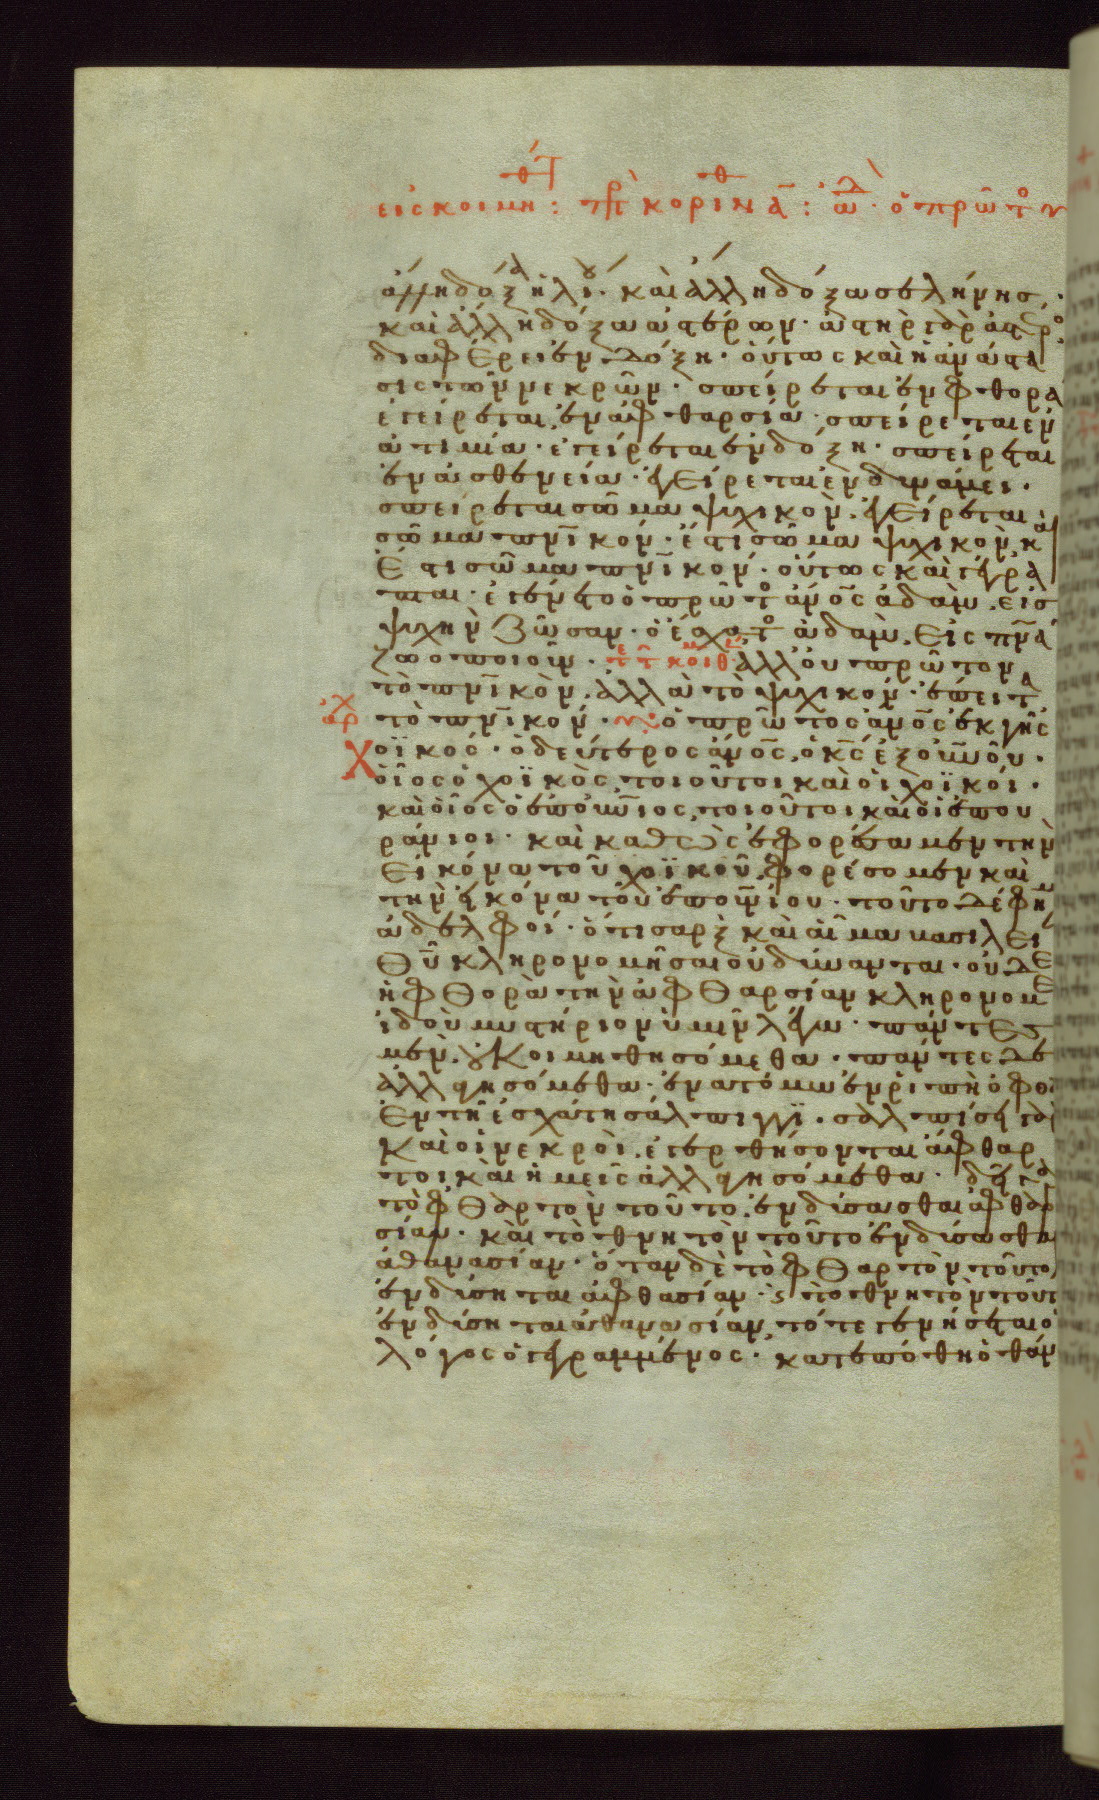 εἰς κοιμηθέντ: πρ κορινθ ᾱ: ἀδελ· ὁ πρῶτος
ἄλλη δόξα ἡλίου· καὶ ἄλλη δόξα σελήνης·
καὶ ἄλλη δόξα ἀστέρων· ἀστὴρ γὰρ ἀστέρος
διαφέρει ἐν δόξη· οὕτως καὶ ἡ ἀνάστα
σις τῶν νεκρῶν· σπείρεται ἐν φθορα
ἐγείρεται ἐν ἀφθαρσία· σπείρεται ἐν
ἀτιμία· ἐγείρεται ἐν δόξη· σπείρεται
ἐν ἀσθενεία· ἐγείρεται ἐν δυνάμει·
σπείρεται σῶμα ψυχικὸν· ἐγείρεται
σῶμα πνικόν· ἔστι σῶμα ψυχικὸν κὰι
ἔστι σῶμα πνικόν· οὕτως καὶ γέγρα
πται· ἐγένετο ὁ πρῶτος ἀνος ἀδὰμ εἰς
ψυχὴν ζῶσαν· ὁ ἔσχατος ἀδὰμ εἰς πνα
ζωοποιοῦν· ἀλλ οὐ πρῶτον
τὸ πνικὸν ἀλλὰ τὸ ψυχικόν· ἔπειτα
αρχ τὸ πνικόν· ὁ πρῶτος ἀνος ἐκ γῆς
Χοϊκός· ὁ δεύτερος ἀνος ὁ κς ἐξ ουνου·
οἷος ὁ χοϊκὸς τοιοῦτοι καὶ οἱ χοϊκοί·
καὶ οἷος ὁ ἐπουνιος τοιοῦτοι καὶ οἱ ἐπου
ράνιοι· καὶ καθὼς ἐφορέσαμεν τὴν
εἰκόνα τοῦ χοϊκοῦ φορέσομεν καὶ
τὴν εἰκόνα τοῦ ἐπουνίου· τοῦτο δέ φημι
ἀδελφοί· ὅτι σαρξ καὶ αἷμα βασιλεί
θυ κληρονομῆσαι οὐ δύνανται· οὐδὲ
ἡ φθορὰ τὴν ἀφθαρσίαν κληρονομε
ἰδοὺ μυστήριον ὑμῖν λέγω· πάντες
μὲν οὐ κοιμηθησόμεθα· πάντες δὲ
ἀλλαγησόμεθα· ἐν ατόμω ἐν ριπὴ ὀφθ
ἐν τῆ ἐσχάτη σάλπιγγι· σαλπίσει γὰρ
καὶ οἱ νεκροὶ ἐγερθήσονται ἄφθαρ
τοι καὶ ἡμεῖς ἀλλαγησόμεθα· δεῖ γὰρ
τὸ φθαρτὸν τοῦτο ἐνδύσασθαι ἀφθαρ
σίαν· καὶ τὸ θνητὸν τοῦτο ἐνδύσασθαι
ἀθανασίαν· ὅταν δὲ τὸ φθαρτὸν τοῦτο
ἐνδύσηται ἀφθασίαν· ϛ τὸ θνητὸν τοῦτ
ἐνδύσηται ἀθανασίαν, τότε γενήσεται ὁ
λόγος ὁ γεγραμμένος· κατεπόθη ὁ θάν